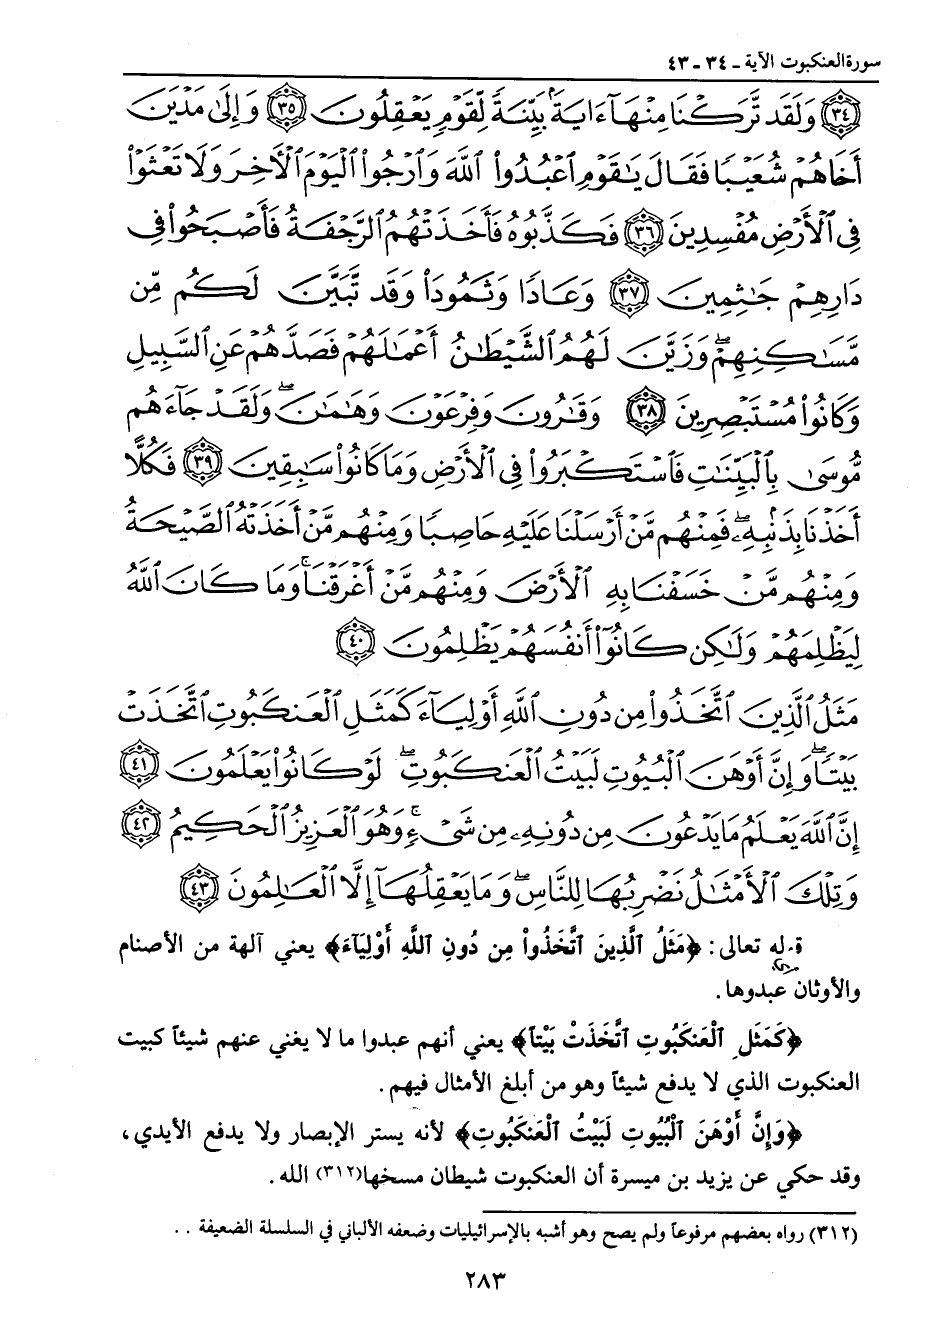 سورة العنكبوت الآية ـ ٣٤ ـ ٤٣
﴿٣٤﴾ وَلَقَد تَّرَكْنَا مِنْهَآ ءَايَةًۢ بَيِّنَةً لِّقَوْمٍ يَعْقِلُونَ ﴿٣٥﴾ وَإِلَىٰ مَدْيَنَ
أَخَاهُمْ شُعَيْبًا فَقَالَ يَٰقَوْمِ ٱعْبُدُوا۟ ٱللَّهَ وَٱرْجُوا۟ ٱلْيَوْمَ ٱلْأَخِرَ وَلَا تَعْثَوْا۟
فِى ٱلْأَرْضِ مُفْسِدِينَ ﴿٣٦﴾ فَكَذَّبُوهُ فَأَخَذَتْهُمُ ٱلرَّجْفَةُ فَأَصْبَحُوا۟ فِى
دَارِهِمْ جَٰثِمِينَ ﴿٣٧﴾ وَعَادًا وَثَمُودَا۟ وَقَد تَّبَيَّنَ لَكُم مِّن
مَّسَٰكِنِهِمْ ۖ وَزَيَّنَ لَهُمُ ٱلشَّيْطَٰنُ أَعْمَٰلَهُمْ فَصَدَّهُمْ عَنِ ٱلسَّبِيلِ
وَكَانُوا۟ مُسْتَبْصِرِينَ ﴿٣٨﴾ وَقَٰرُونَ وَفِرْعَوْنَ وَهَٰمَٰنَ ۖ وَلَقَدْ جَآءَهُم
مُّوسَىٰ بِٱلْبَيِّنَٰتِ فَٱسْتَكْبَرُوا۟ فِى ٱلْأَرْضِ وَمَا كَانُوا۟ سَٰبِقِينَ ﴿٣٩﴾ فَكُلًّا
أَخَذْنَا بِذَنۢبِهِۦ ۖ فَمِنْهُم مَّنْ أَرْسَلْنَا عَلَيْهِ حَاصِبًا وَمِنْهُم مَّنْ أَخَذَتْهُ ٱلصَّيْحَةُ
وَمِنْهُم مَّنْ خَسَفْنَا بِهِ ٱلْأَرْضَ وَمِنْهُم مَّنْ أَغْرَقْنَا ۚ وَمَا كَانَ ٱللَّهُ
لِيَظْلِمَهُمْ وَلَٰكِن كَانُوٓا۟ أَنفُسَهُمْ يَظْلِمُونَ ﴿٤٠﴾
مَثَلُ ٱلَّذِينَ ٱتَّخَذُوا۟ مِن دُونِ ٱللَّهِ أَوْلِيَآءَ كَمَثَلِ ٱلْعَنكَبُوتِ ٱتَّخَذَتْ
بَيْتًا ۖ وَإِنَّ أَوْهَنَ ٱلْبُيُوتِ لَبَيْتُ ٱلْعَنكَبُوتِ ۖ لَوْ كَانُوا۟ يَعْلَمُونَ ﴿٤١﴾
إِنَّ ٱللَّهَ يَعْلَمُ مَا يَدْعُونَ مِن دُونِهِۦ مِن شَىْءٍ ۚ وَهُوَ ٱلْعَزِيزُ ٱلْحَكِيمُ ﴿٤٢﴾
وَتِلْكَ ٱلْأَمْثَٰلُ نَضْرِبُهَا لِلنَّاسِ ۖ وَمَا يَعْقِلُهَآ إِلَّا ٱلْعَٰلِمُونَ ﴿٤٣﴾
قوله تعالى: ﴿مَثَلُ ٱلَّذِينَ ٱتَّخَذُوا۟ مِن دُونِ ٱللَّهِ أَوْلِيَآءَ﴾ يعني آلهة من الأصنام
والأوثان عبدوها.
﴿كَمَثَلِ ٱلْعَنكَبُوتِ ٱتَّخَذَتْ بَيْتاً﴾ يعني أنهم عبدوا ما لا يغني عنهم شيئاً كبيت
العنكبوت الذي لا يدفع شيئاً وهو من أبلغ الأمثال فيهم.
﴿وَإِنَّ أَوْهَنَ ٱلْبُيُوتِ لَبَيْتُ ٱلْعَنكَبُوتِ﴾ لأنه يستر الإبصار ولا يدفع الأيدي،
وقد حكي عن يزيد بن ميسرة أن العنكبوت شيطان مسخها(٣١٢) الله.
(٣١٢) رواه بعضهم مرفوعاً ولم يصح وهو أشبه بالإسرائيليات وضعفه الألباني في السلسلة الضعيفة . .
٢٨٣